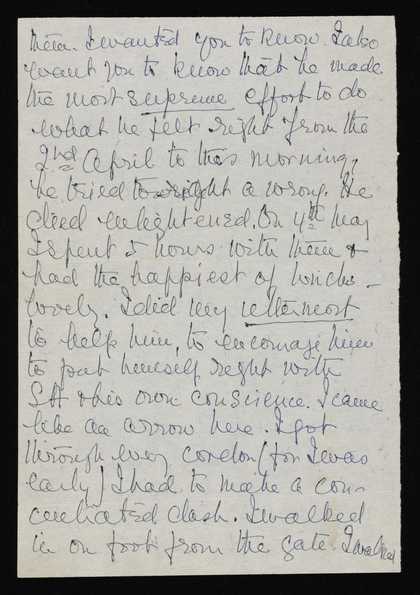 him. I wanted you to know. I also
want you to know that he made
the most supreme effort to do
what he felt right from the
2nd April to this morning,
he tried to right a wrong. He
died enlightened. On 4th May
I spent 5 hours with them &
had the happiest of lunches –
lovely. I did my uttermost
to help him, to encourage him
to put himself right with
& his own conscience. I came
like an arrow here. I got
through every cordon (for I was
early) I had to make a con-
centrated dash. I walked
in on foot from the gate. I walked